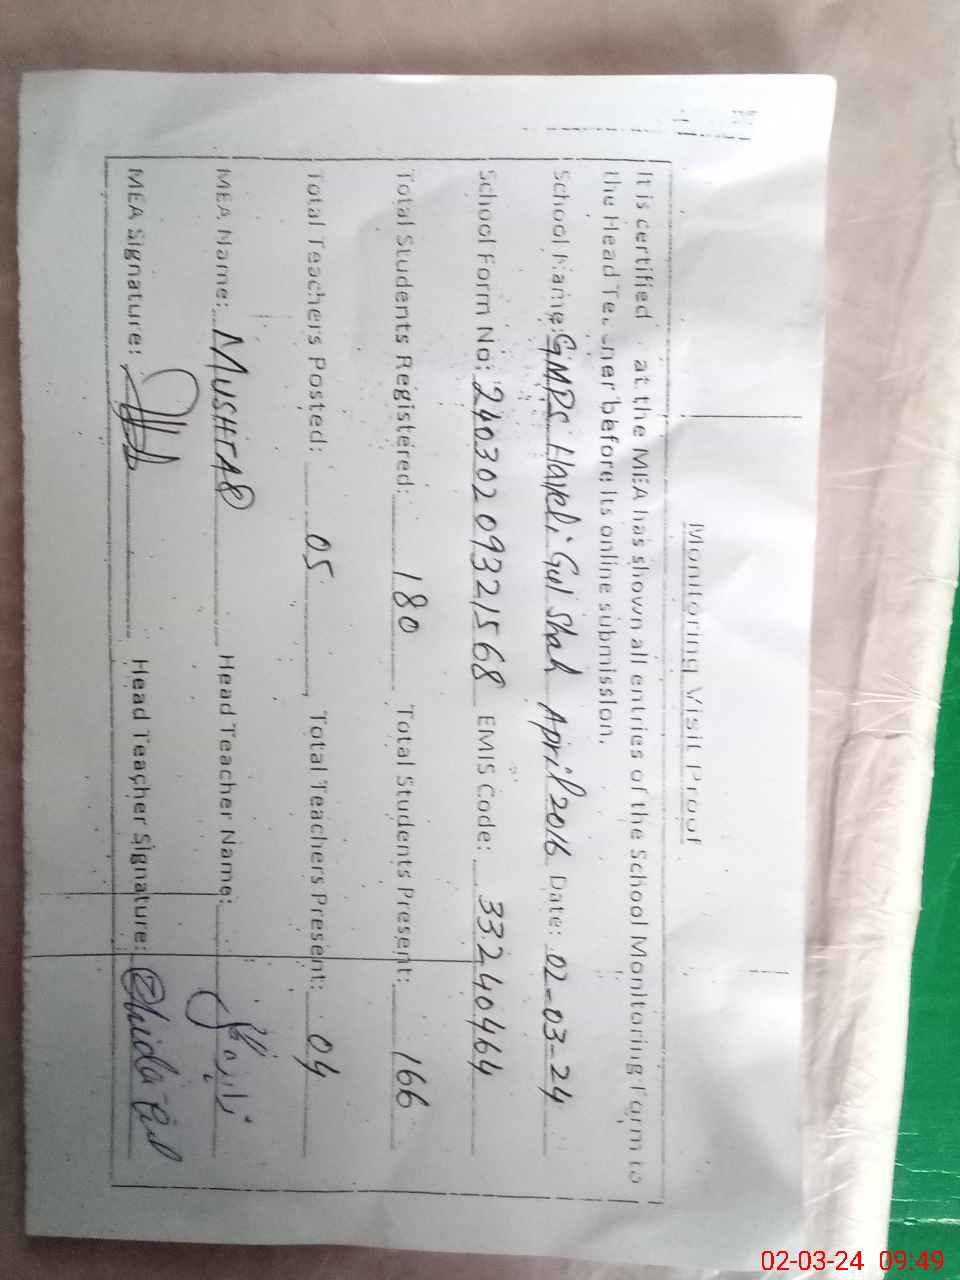 Monitoring Visit Proof
It is certified at the MEA has shown all entries of the School Monitoring Form to
the Head before its online submission.
School Name: GMPS Gul Shah April 2016 Date: 02-03-24
School Form No: 24030209321568 EMIS Code: 33240464
Total Students Registered: 180 Total Students Present: 166
Total Teachers Posted: 05, Total Teachers Present: 04
MEA Name: MUSHTAQ Head Teacher Name:
MEA Signature: Head Teacher Signature:
02-03-24 09:49